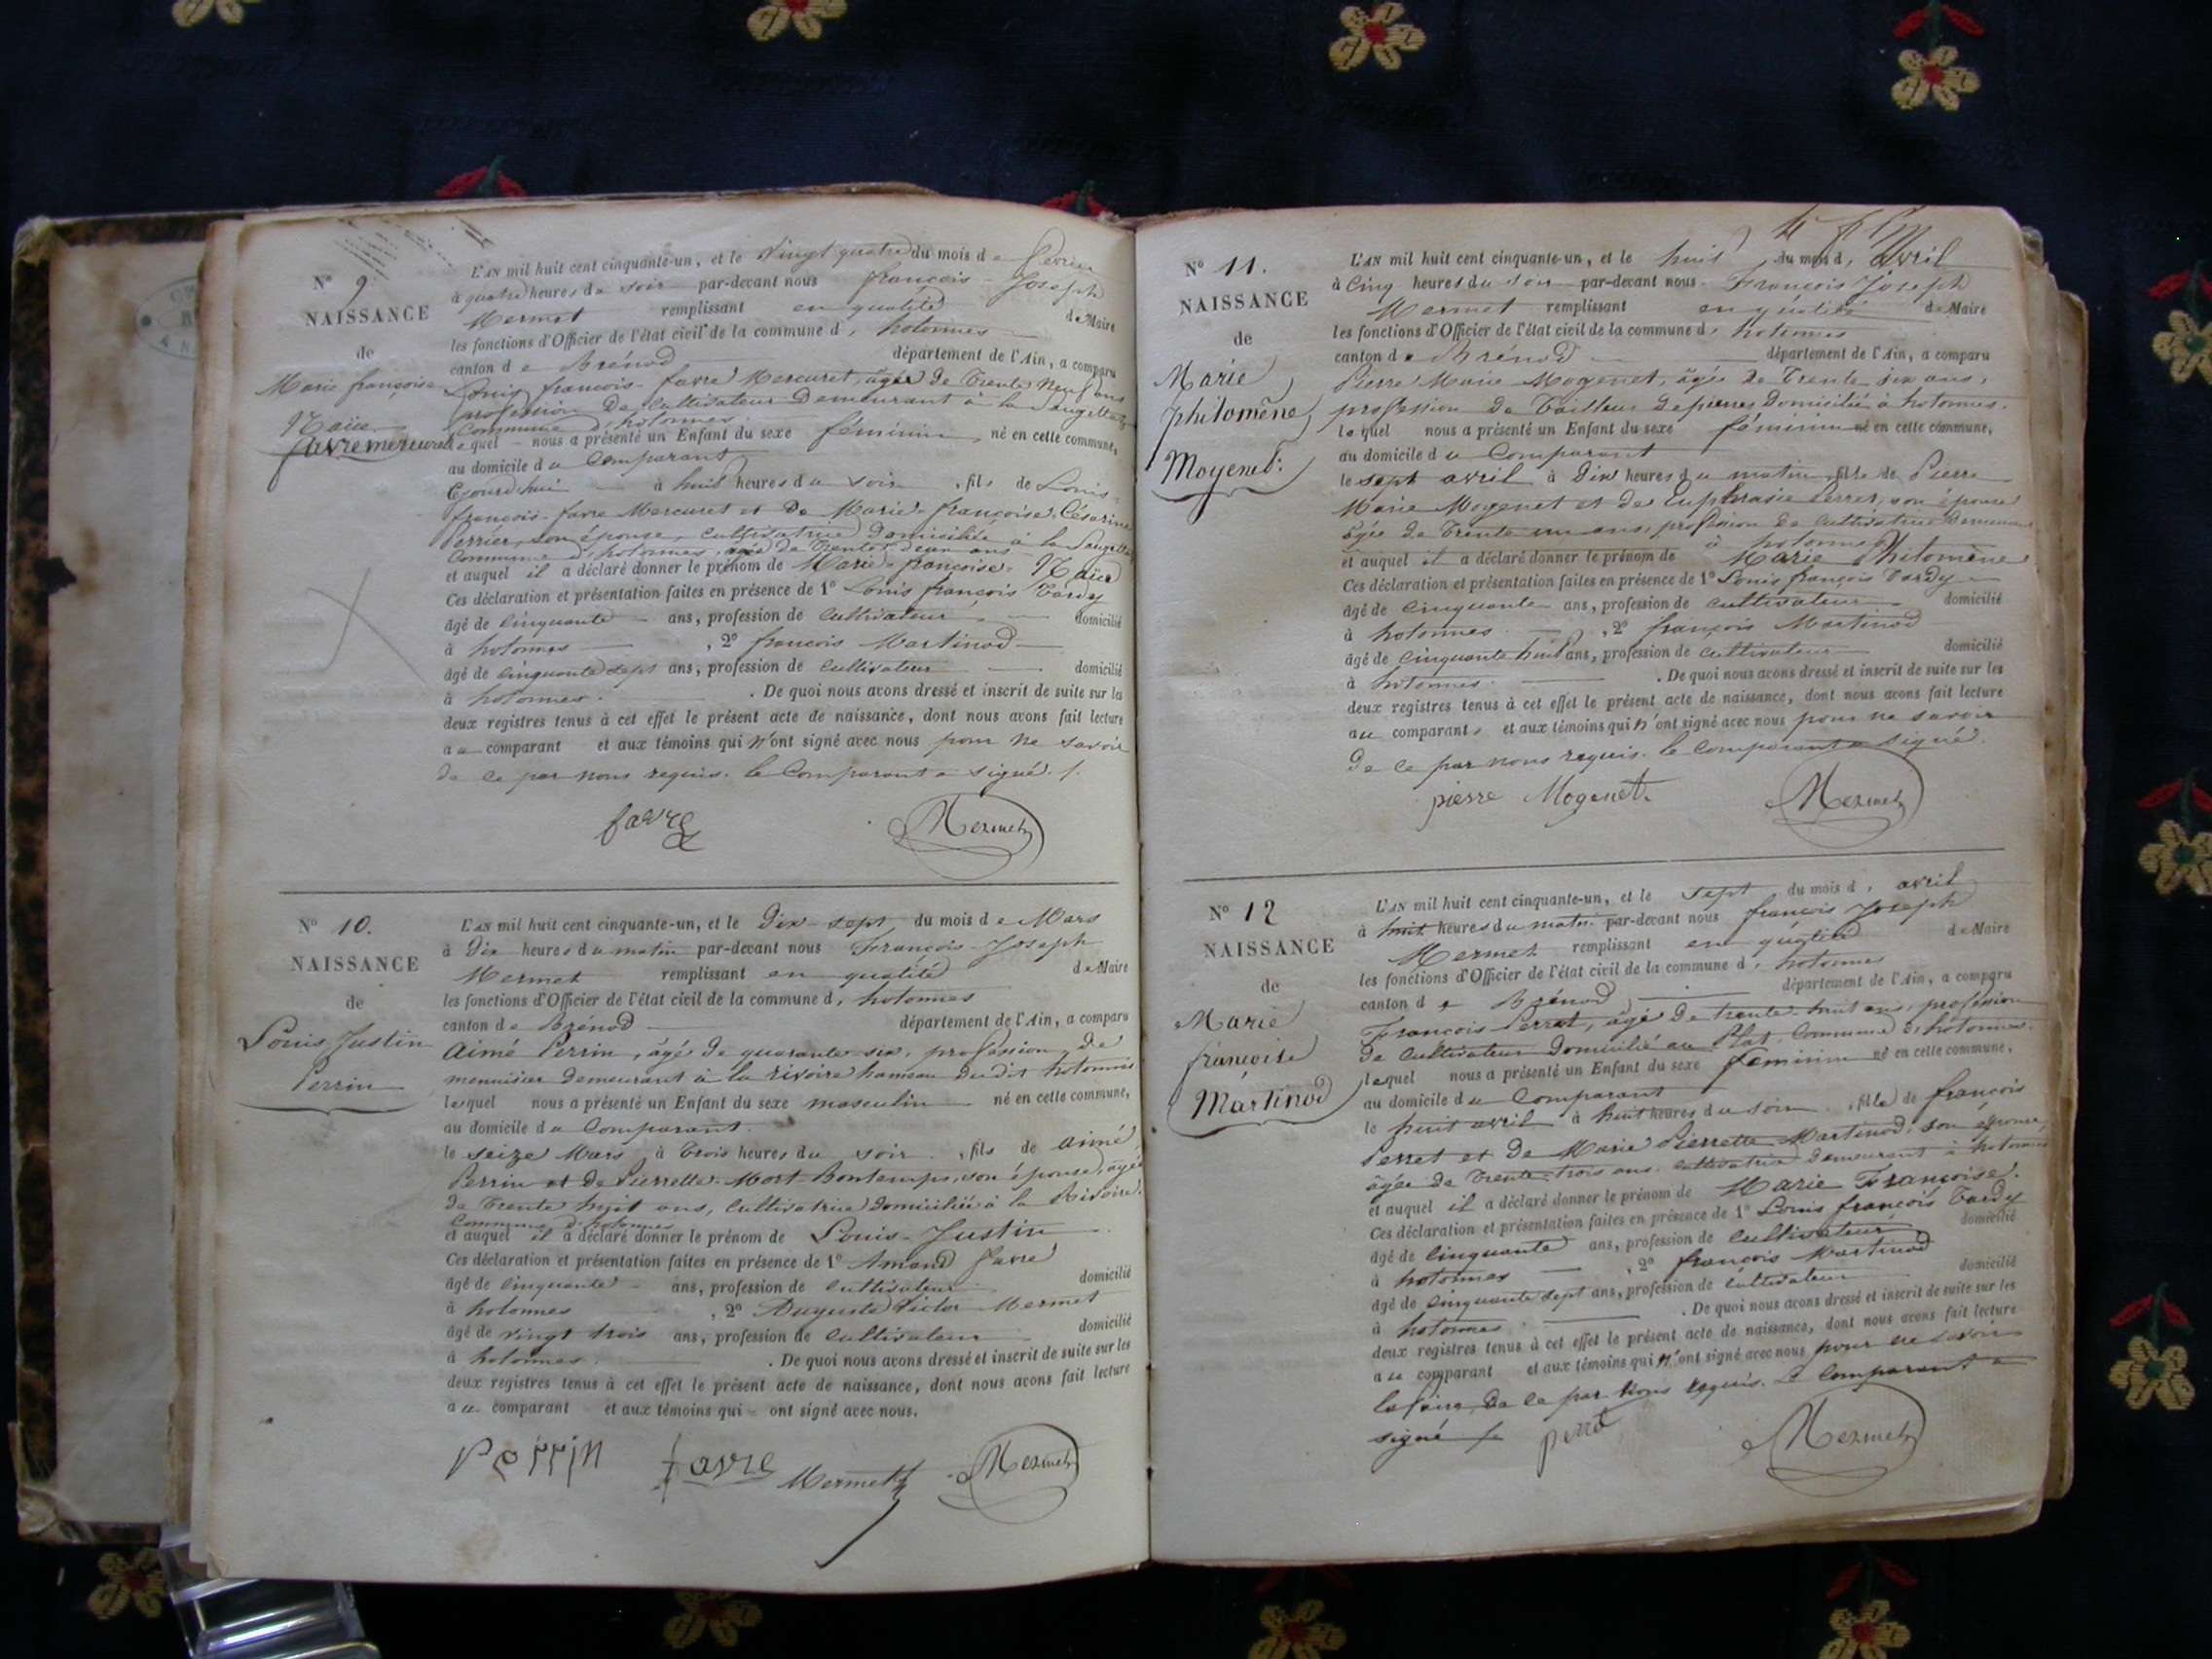 N° 9
NAISSANCE
de
Marie françoise
Naïce
favre mercuret
L'AN mil huit cent cinquante-un, et le Vingt quatre du mois de février
à quatre heures du soir par-devant nous françois-Joseph
Mermet remplissant en qualité de Maire
les fonctions d'Officier de l'état civil de la commune d'hotonnes
canton de Brénod département de l'Ain, a comparu
Louis françois favre Mercuret, âgé de trente neuf ans
profession de cultivateur demeurant à la
commune d'hotonnes
lequel nous a présenté un Enfant du sexe féminin né en cette commune,
au domicile du Comparant
à huit heures du soir, fils de Louis-
françois-favre Mercuret et de Marie-françoise-Césarine
Perrier, son épouse, cultivatrice domiciliée à la
Commune d'hotonnes, de trente deux ans
et auquel il a déclaré donner le prénom de Marie-françoise-Naïce
Ces déclaration et présentation faites en présence de 1° Louis françois Tardy
âgé de cinquante ans, profession de cultivateur domicilié
à hotonnes, 2° françois Martinod
âgé de cinquante sept ans, profession de cultivateur domicilié
à hotonnes. De quoi nous avons dressé et inscrit de suite sur les
deux registres tenus à cet effet le présent acte de naissance, dont nous avons fait lecture
au comparant et aux témoins qui n'ont signé avec nous pour ne savoir
de ce par nous requis. le Comparant a signé.
favre Mermet
N° 10.
NAISSANCE
de
Louis Justin
Perrin
L'AN mil huit cent cinquante-un, et le Dix-sept du mois de Mars
à Dix heures du matin par-devant nous François-Joseph
Mermet remplissant en qualité de Maire
les fonctions d'Officier de l'état civil de la commune d'hotonnes
canton de Brénod département de l'Ain, a comparu
Aimé Perrin, âgé de quarante six, profession de
menuisier demeurant à la rivoire hameau du dit hotonnes
lequel nous a présenté un Enfant du sexe masculin né en cette commune,
au domicile du Comparant.
le seize Mars à Trois heures du soir, fils de Aimé
Perrin et de Pierrette Mort-Bontemps, son épouse, âgée
de trente huit ans, cultivatrice domiciliée à la Rivoire
Commune d'hotonnes
et auquel il a déclaré donner le prénom de Louis-Justin
Ces déclaration et présentation faites en présence de 1° Amand favre
âgé de cinquante ans, profession de cultivateur domicilié
à hotonnes, 2° Auguste Victor Mermet
âgé de vingt trois ans, profession de cultivateur domicilié
à hotonnes. De quoi nous avons dressé et inscrit de suite sur les
deux registres tenus à cet effet le présent acte de naissance, dont nous avons fait lecture
au comparant et aux témoins qui ont signé avec nous.
Perrin favre Mermet Mermet
N° 11.
NAISSANCE
de
Marie
philomène
Mogenet
L'AN mil huit cent cinquante-un, et le huit du mois d'Avril
à Cinq heures du soir par-devant nous François Joseph
Mermet remplissant en qualité de Maire
les fonctions d'Officier de l'état civil de la commune d'hotonnes
canton de Brénod département de l'Ain, a comparu
Pierre Marie Mogenet, âgé de trente six ans,
profession de Tailleur de pierres domicilié à hotonnes.
lequel nous a présenté un Enfant du sexe féminin né en cette commune,
au domicile du Comparant
le sept avril à Dix heures du matin, fille de Pierre
Marie Mogenet et de Euphrasie Perret, son épouse
âgée de trente un ans, profession de cultivatrice
à hotonnes
et auquel il a déclaré donner le prénom de Marie Philomène
Ces déclaration et présentation faites en présence de 1° Louis françois Tardy
âgé de cinquante ans, profession de cultivateur domicilié
à hotonnes, 2° françois Martinod
âgé de cinquante huit ans, profession de cultivateur domicilié
à hotonnes. De quoi nous avons dressé et inscrit de suite sur les
deux registres tenus à cet effet le présent acte de naissance, dont nous avons fait lecture
au comparant, et aux témoins qui n'ont signé avec nous pour ne savoir
de ce par nous requis. le Comparant a signé.
pierre Mogenet. Mermet
N° 12
NAISSANCE
de
Marie
françoise
Martinod
L'AN mil huit cent cinquante-un, et le sept du mois d'avril
à huit heures du matin par-devant nous françois Joseph
Mermet remplissant en qualité de Maire
les fonctions d'Officier de l'état civil de la commune d'hotonnes
canton de Brénod département de l'Ain, a comparu
François Perret, âgé de trente huit ans, profession
de cultivateur domicilié au Plat, Commune d'hotonnes.
lequel nous a présenté un Enfant du sexe feminin né en cette commune,
au domicile du Comparant
le huit avril à huit heures du soir, fille de françois
Perret et de Marie Pierrette Martinod, son épouse,
âgée de trente-trois ans, cultivatrice demeurant à hotonnes
et auquel il a déclaré donner le prénom de Marie Françoise.
Ces déclaration et présentation faites en présence de 1° Louis françois Tardy
âgé de cinquante ans, profession de cultivateur domicilié
à hotonnes, 2° françois Martinod
âgé de cinquante sept ans, profession de cultivateur domicilié
à hotonnes. De quoi nous avons dressé et inscrit de suite sur les
deux registres tenus à cet effet le présent acte de naissance, dont nous avons fait lecture
au comparant et aux témoins qui n'ont signé avec nous pour ne savoir
le faire, de ce par nous requis. Le Comparant a
signé
Mermet